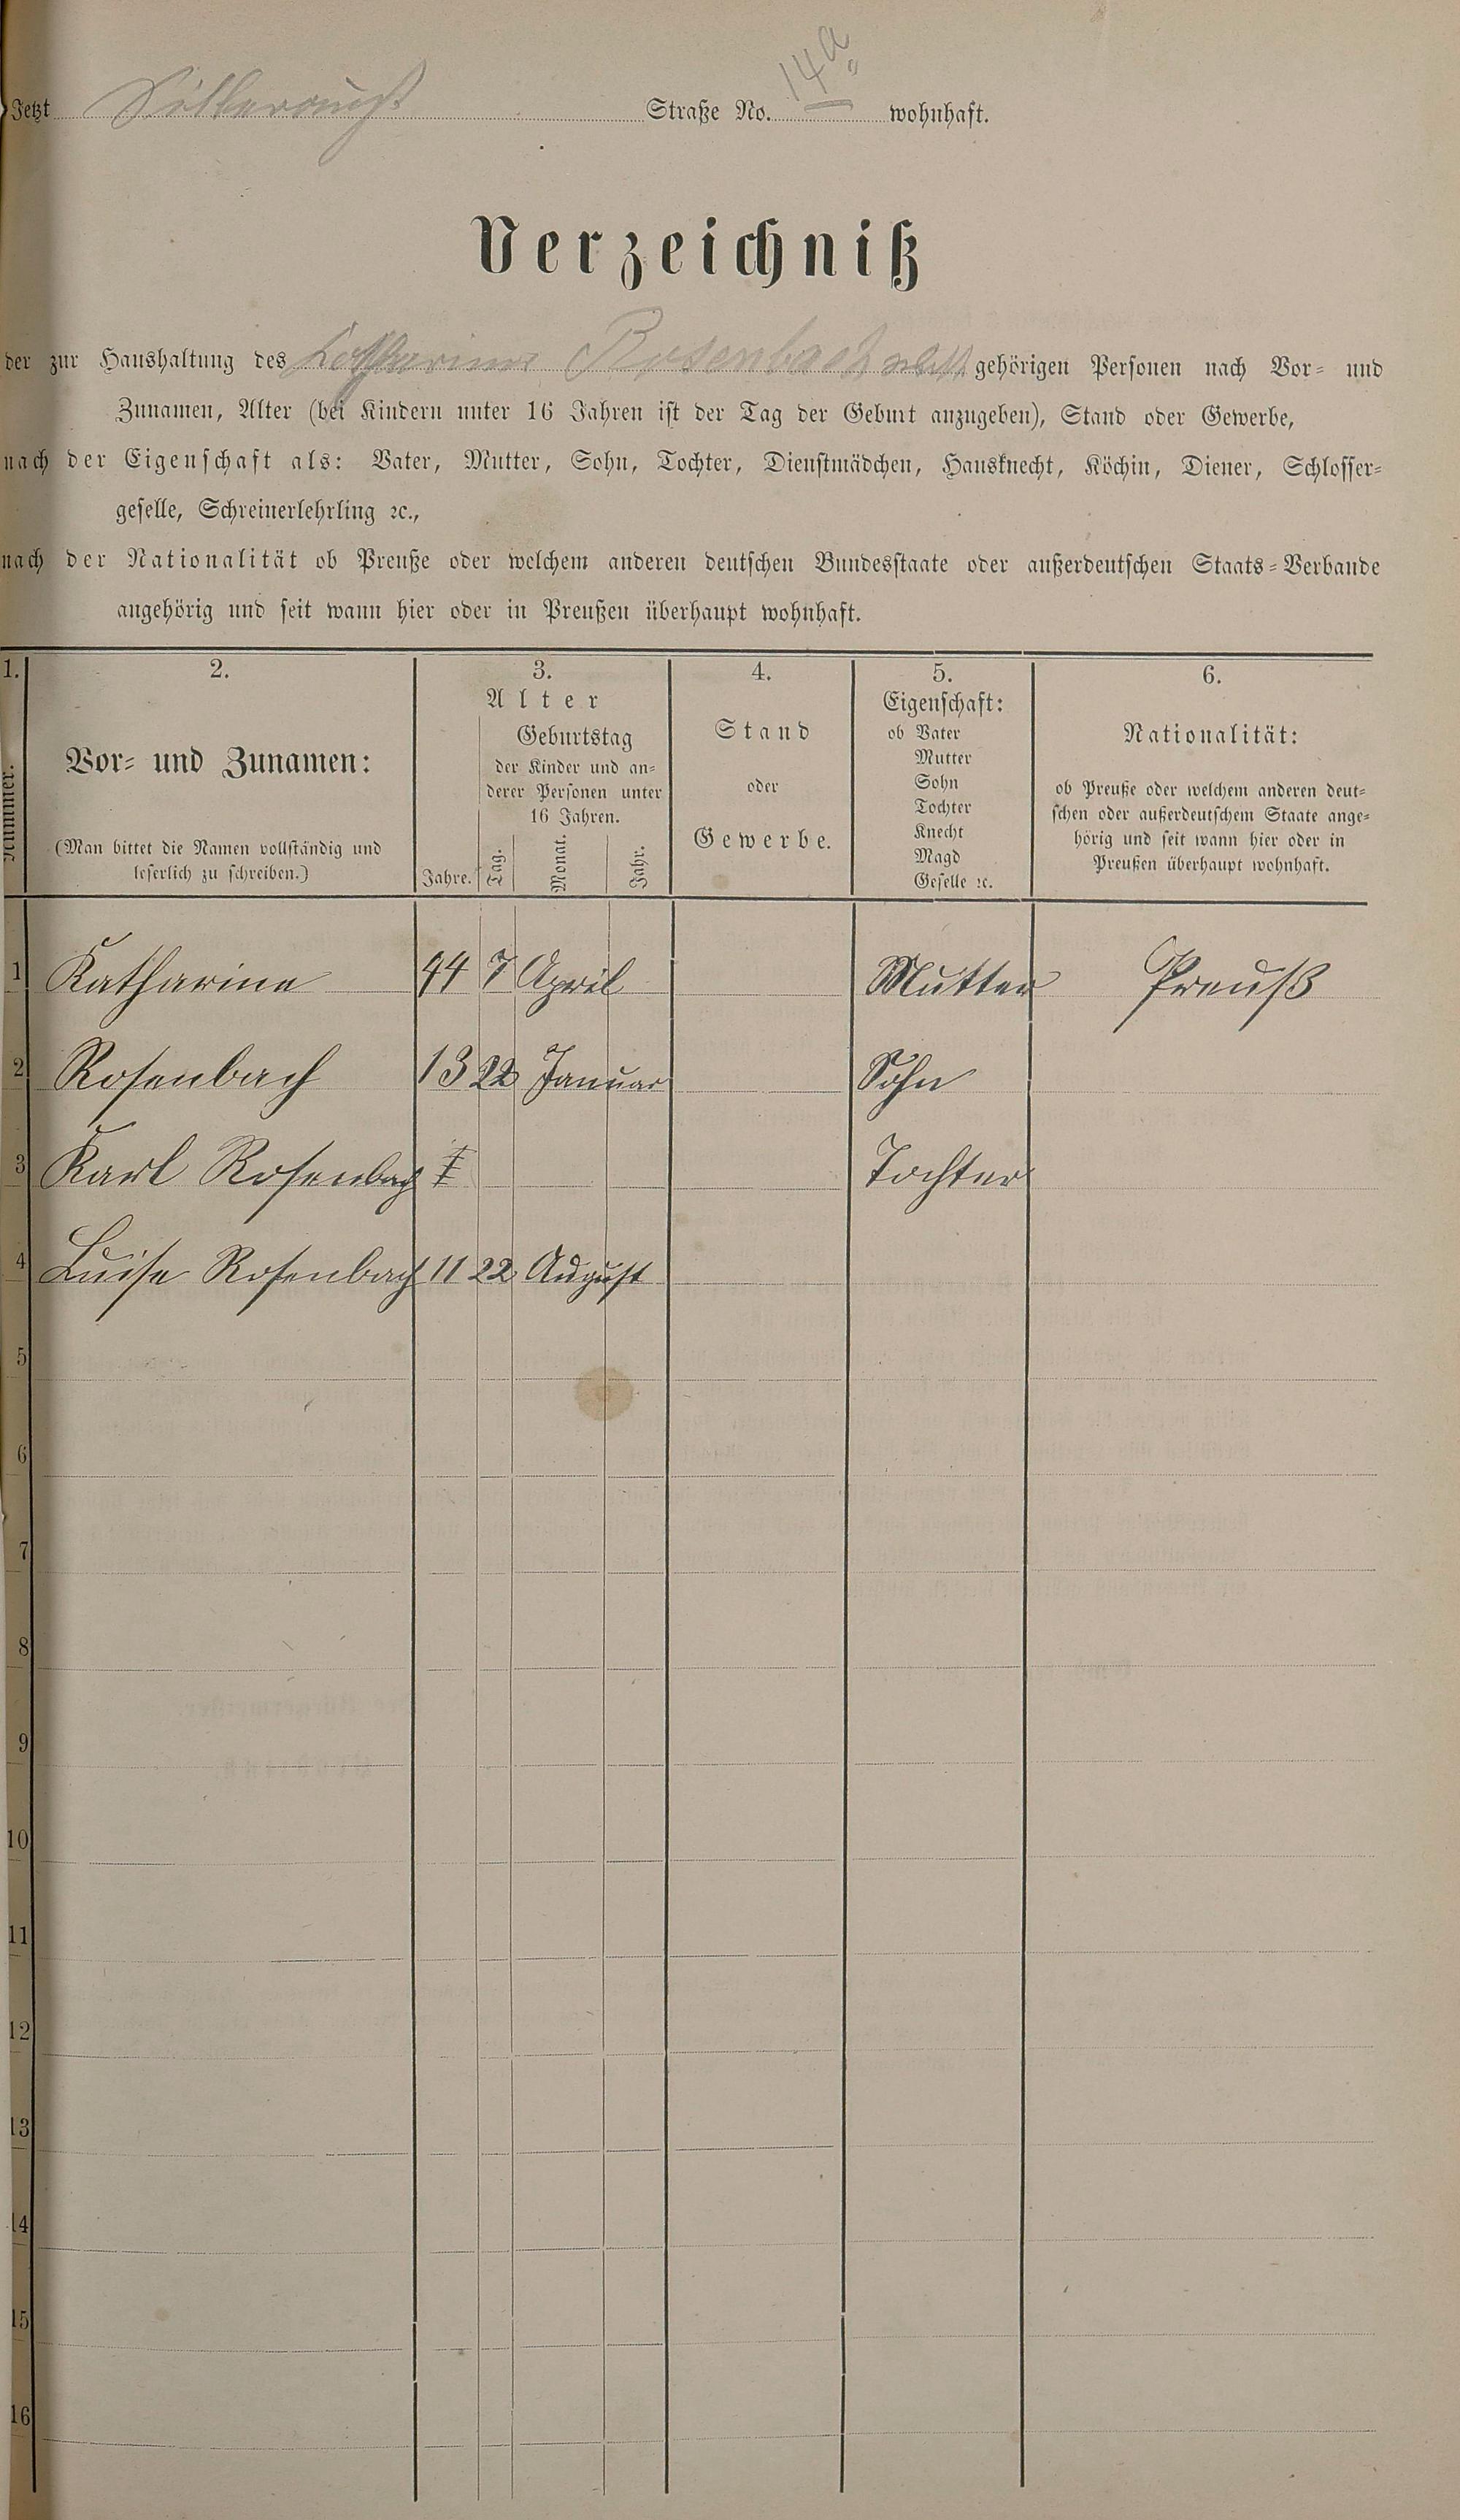 Jetzt Straße No. 14a wohnhaft.
Verzeichniß
der zur Haushaltung des Katharina Rosenbach gehörigen Personen nach Vor- und
Zunamen, Alter (bei Kindern unter 16 Jahren ist der Tag der Geburt anzugeben), Stand oder Gewerbe,
nach der Eigenschaft als: Vater, Mutter, Sohn, Tochter, Dienstmädchen, Hausknecht, Köchin, Diener, Schlosser-
geselle, Schreinerlehrling ꝛc.,
nach der Nationalität ob Preuße oder welchem anderen deutschen Bundesstaate oder außerdeutschen Staats-Verbande
angehörig und seit wann hier oder in Preußen überhaupt wohnhaft.
1.
Nummer.
2.
Vor- und Zunamen:
(Man bittet die Namen vollständig und
leserlich zu schreiben.)
3.
Alter
Geburtstag
der Kinder und an-
derer Personen unter
16 Jahren.
Jahre. Tag. Monat. Jahr.
4.
Stand
oder
Gewerbe.
5.
Eigenschaft:
ob Vater
Mutter
Sohn
Tochter
Knecht
Magd
Geselle ꝛc.
6.
Nationalität:
ob Preuße oder welchem anderen deut-
schen oder außerdeutschem Staate ange-
hörig und seit wann hier oder in
Preußen überhaupt wohnhaft.
1 Katharina 44 7 April Mutter Preuß
2 Rosenbach 13 22 Januar Sohn
3 Karl Rosenbach Tochter
4 Luise Rosenbach 11 22 August
5
6
7
8
9
10
11
12
13
14
15
16